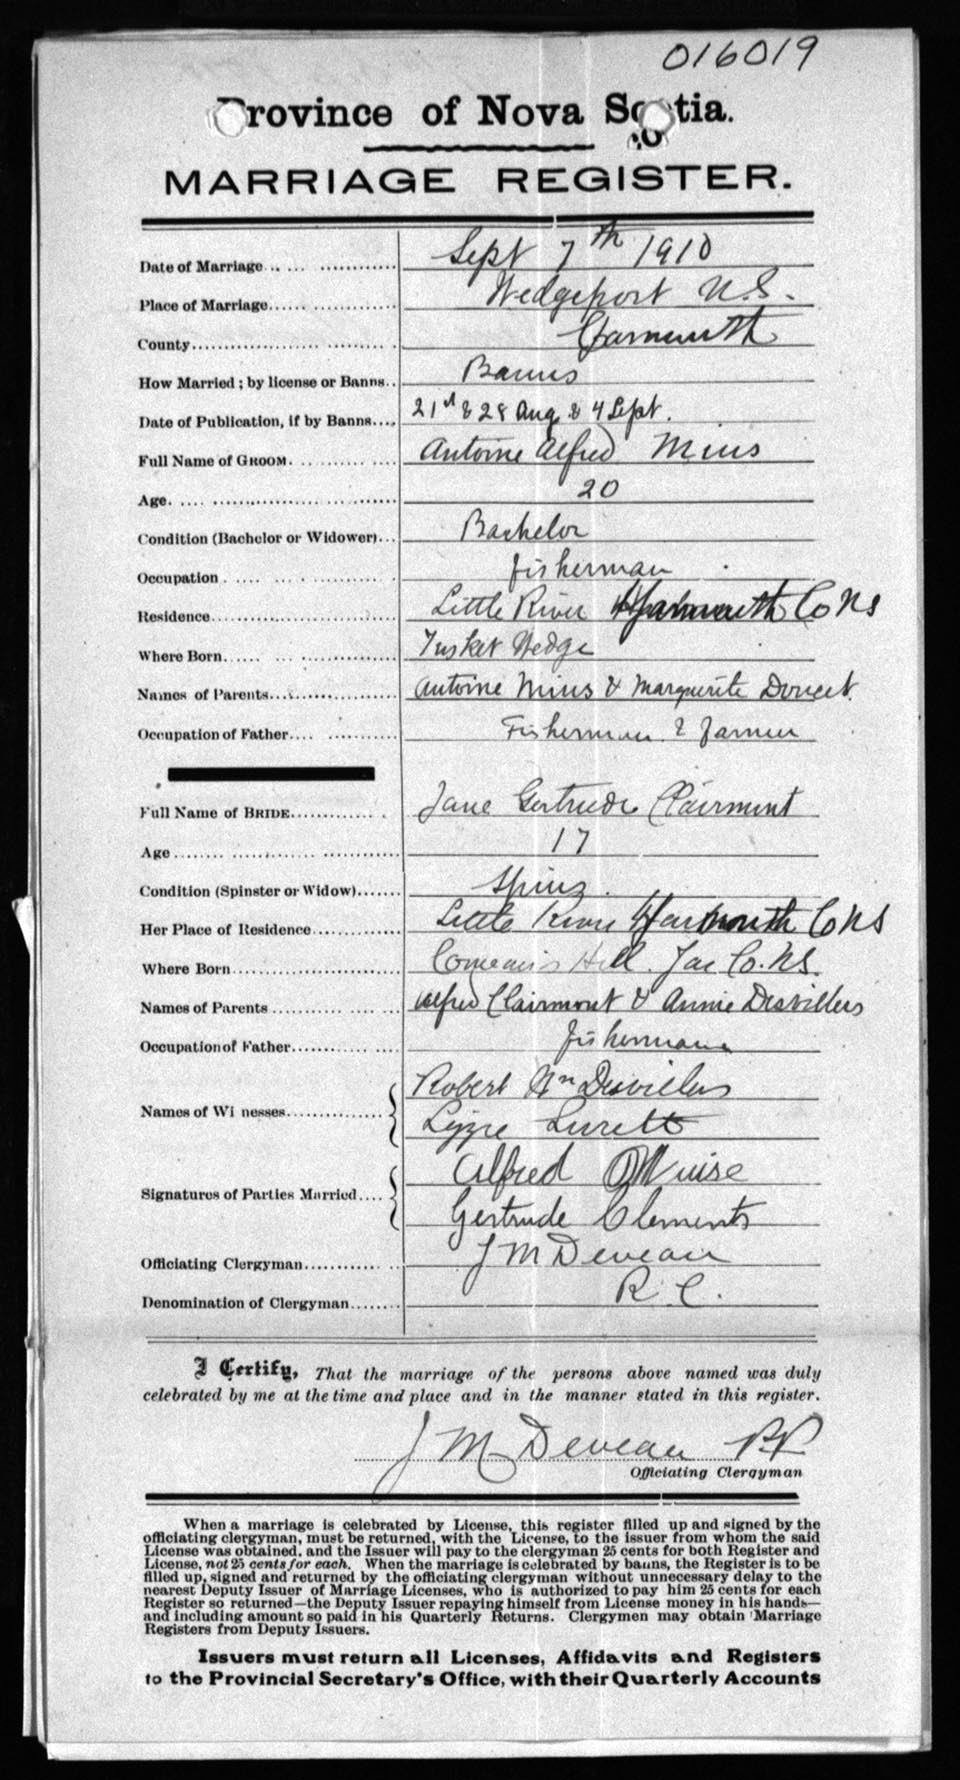 016019
Province of Nova Scotia.
MARRIAGE REGISTER.
Date of Marriage Sept 7th 1910
Place of Marriage Wedgeport N.S.
County Yarmouth
How Married; by license or Banns.. Banns
Date of Publication, if by Banns.... 21st & 28 Aug & 4 Sept.
Full Name of GROOM. Antoine Alfred Mius
Age. 20
Condition (Bachelor or Widower)... Bachelor
Occupation fisherman
Residence Little River Yarmouth Co NS
Where Born Tusket Wedge
Names of Parents Antoine Mius & Marguerite Doucet
Occupation of Father Fisherman & farmer
Full Name of BRIDE Jane Gertrude Clairmont
Age 17
Condition (Spinster or Widow) Spins.
Her Place of Residence Little River Yarmouth Co NS
Where Born Comeau's Hill. Yar Co. NS.
Names of Parents Alfred Clairmont & Annie
Occupation of Father fisherman
Names of Wi nesses Robert Wm
Lizzie
Signatures of Parties Married Alfred Muise
Gertrude Clements
Officiating Clergyman J M Deveau
Denomination of Clergyman R. C.
I Certify, That the marriage of the persons above named was duly
celebrated by me at the time and place and in the manner stated in this register.
J M Deveau PP
Officiating Clergyman
When a marriage is celebrated by License, this register filled up and signed by the
officiating clergyman, must be returned, with the License, to the issuer from whom the said
License was obtained, and the Issuer will pay to the clergyman 25 cents for both Register and
License, not 25 cents for each. When the marriage is celebrated by banns, the Register is to be
filled up, signed and returned by the officiating clergyman without unnecessary delay to the
nearest Deputy Issuer of Marriage Licenses, who is authorized to pay him 25 cents for each
Register so returned—the Deputy Issuer repaying himself from License money in his hands—
and including amount so paid in his Quarterly Returns. Clergymen may obtain Marriage
Registers from Deputy Issuers.
Issuers must return all Licenses, Affidavits and Registers
to the Provincial Secretary's Office, with their Quarterly Accounts